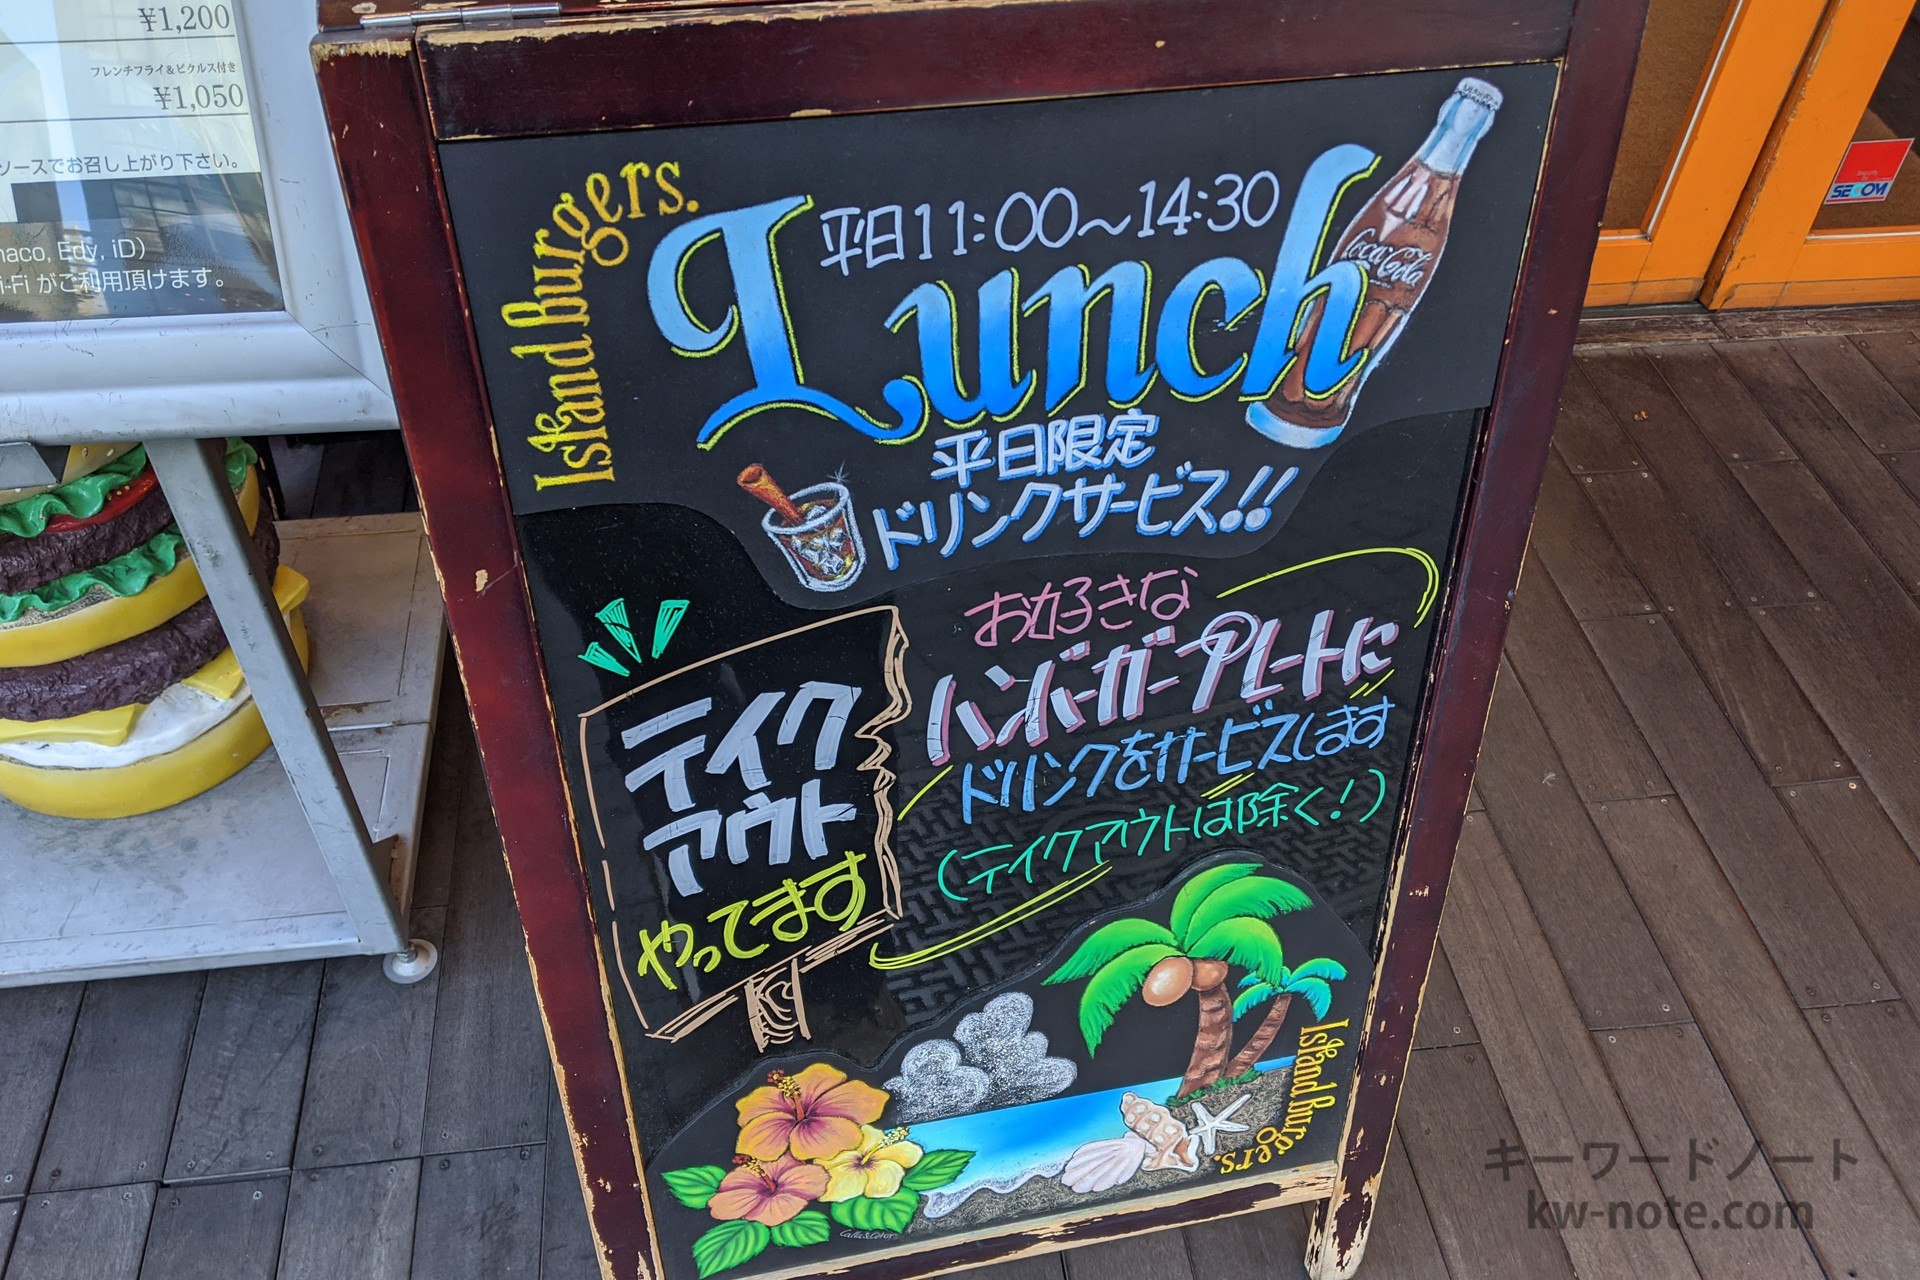 ¥1,200
フレンチフライ&ピクルス付き
¥1,050
ソースでお召し上がり下さい。
naco, Edy, iD)
i-Fi がご利用頂けます。
Island burgers.
平日11:00～14:30
Lunch
Coca-Cola
平日限定
ドリンクサービス!!
テイク
アウト
やってます
お好きな
ハンバーガープレートに
ドリンクをサービスします
(テイクアウトは除く!)
Island burgers.
SECOM
キーワードノート
kw-note.com